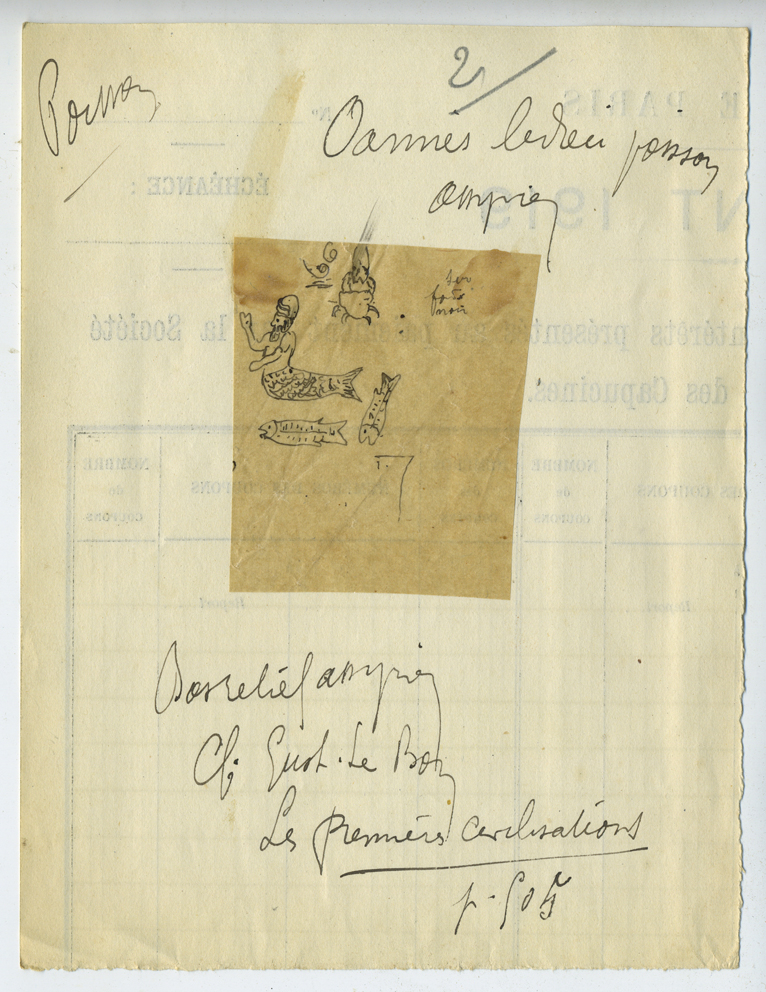 2
Poisson
Oannès le dieu poisson
assyrien
sur
fond
noir
Bas relief assyrien
Cf. Gust. Le Bon
Les premières civilisations
p. 505
E PARIS
N°
ÉCHÉANCE :
NT 1919
ntérêts présentés la Société
des Capucines.
NOMBRE
de
COUPONS
DES COUPONS
NOMBRE
de
COUPONS
Report
Report